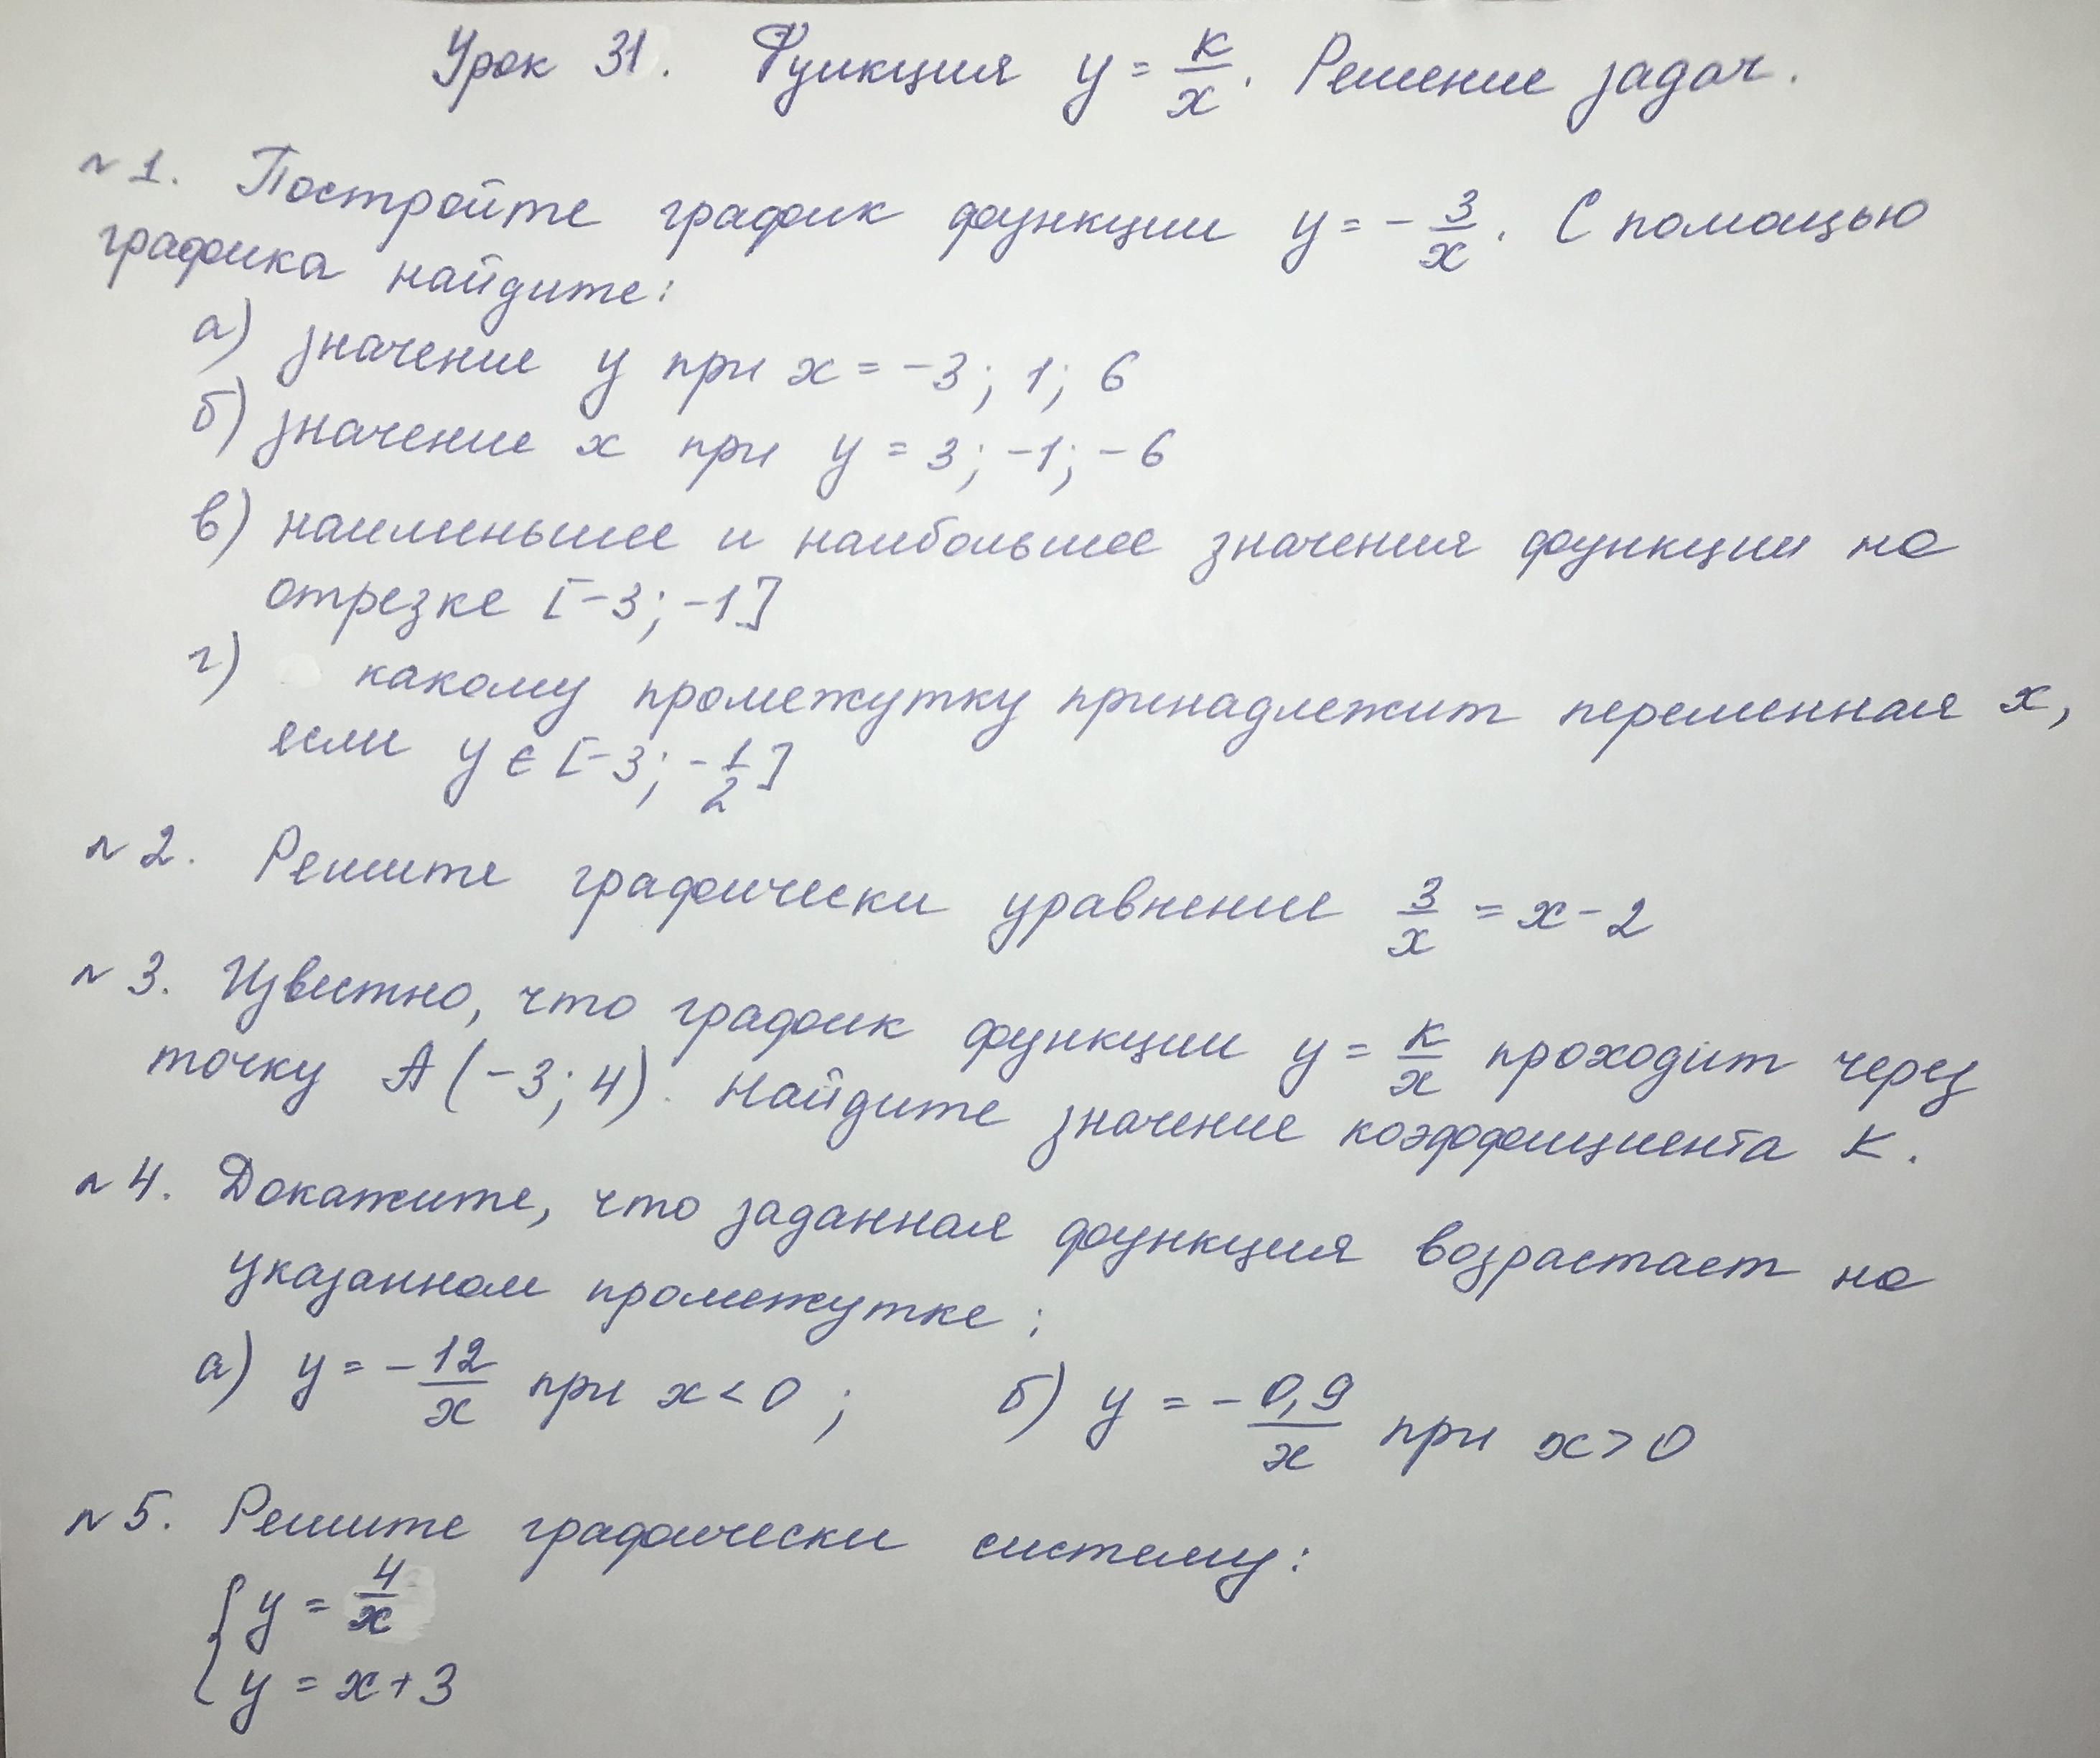 Урок 31. Функция y = к/x. Решение задач.
№1. Постройте график функции y = - 3/x. С помощью
графика найдите:
а) значение y при x = -3; 1; 6
б) значение x при y = 3; -1; -6
в) наименьшее и наибольшее значения функции на
отрезке [-3; -1]
г) какому промежутку принадлежит переменная x,
если y ∈ [-3; -1/2]
№2. Решите графически уравнение 3/x = x - 2
№3. Известно, что график функции y = к/x проходит через
точку A(-3; 4). Найдите значение коэффициента к.
№4. Докажите, что заданная функция возрастает на
указанном промежутке:
а) y = - 12/x при x < 0; б) y = - 0,9/x при x > 0
№5. Решите графически систему:
{ y = 4/x
y = x + 3